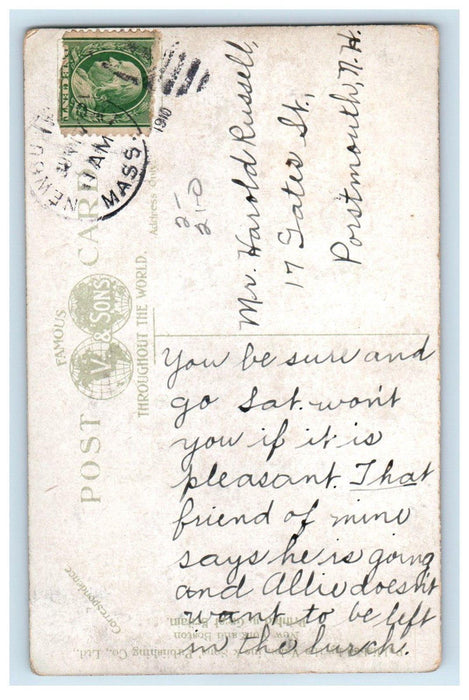 NEWBURY
11 AM
MASS.
1910
ONE CENT
POST CARD
FAMOUS
V. & SONS
THROUGHOUT THE WORLD.
Address only
Correspondence
25
210
Mr. Harold Russell,
17 Gates St.,
Porstmouth, N.H.
You be sure and
go Sat. won't
you if it is
pleasant. That
friend of mine
says he is going
and Allie doesn't
want to be left
in the lurch.
Publishing Co., Ltd.,
New York and Boston
Printed in Great Britain.